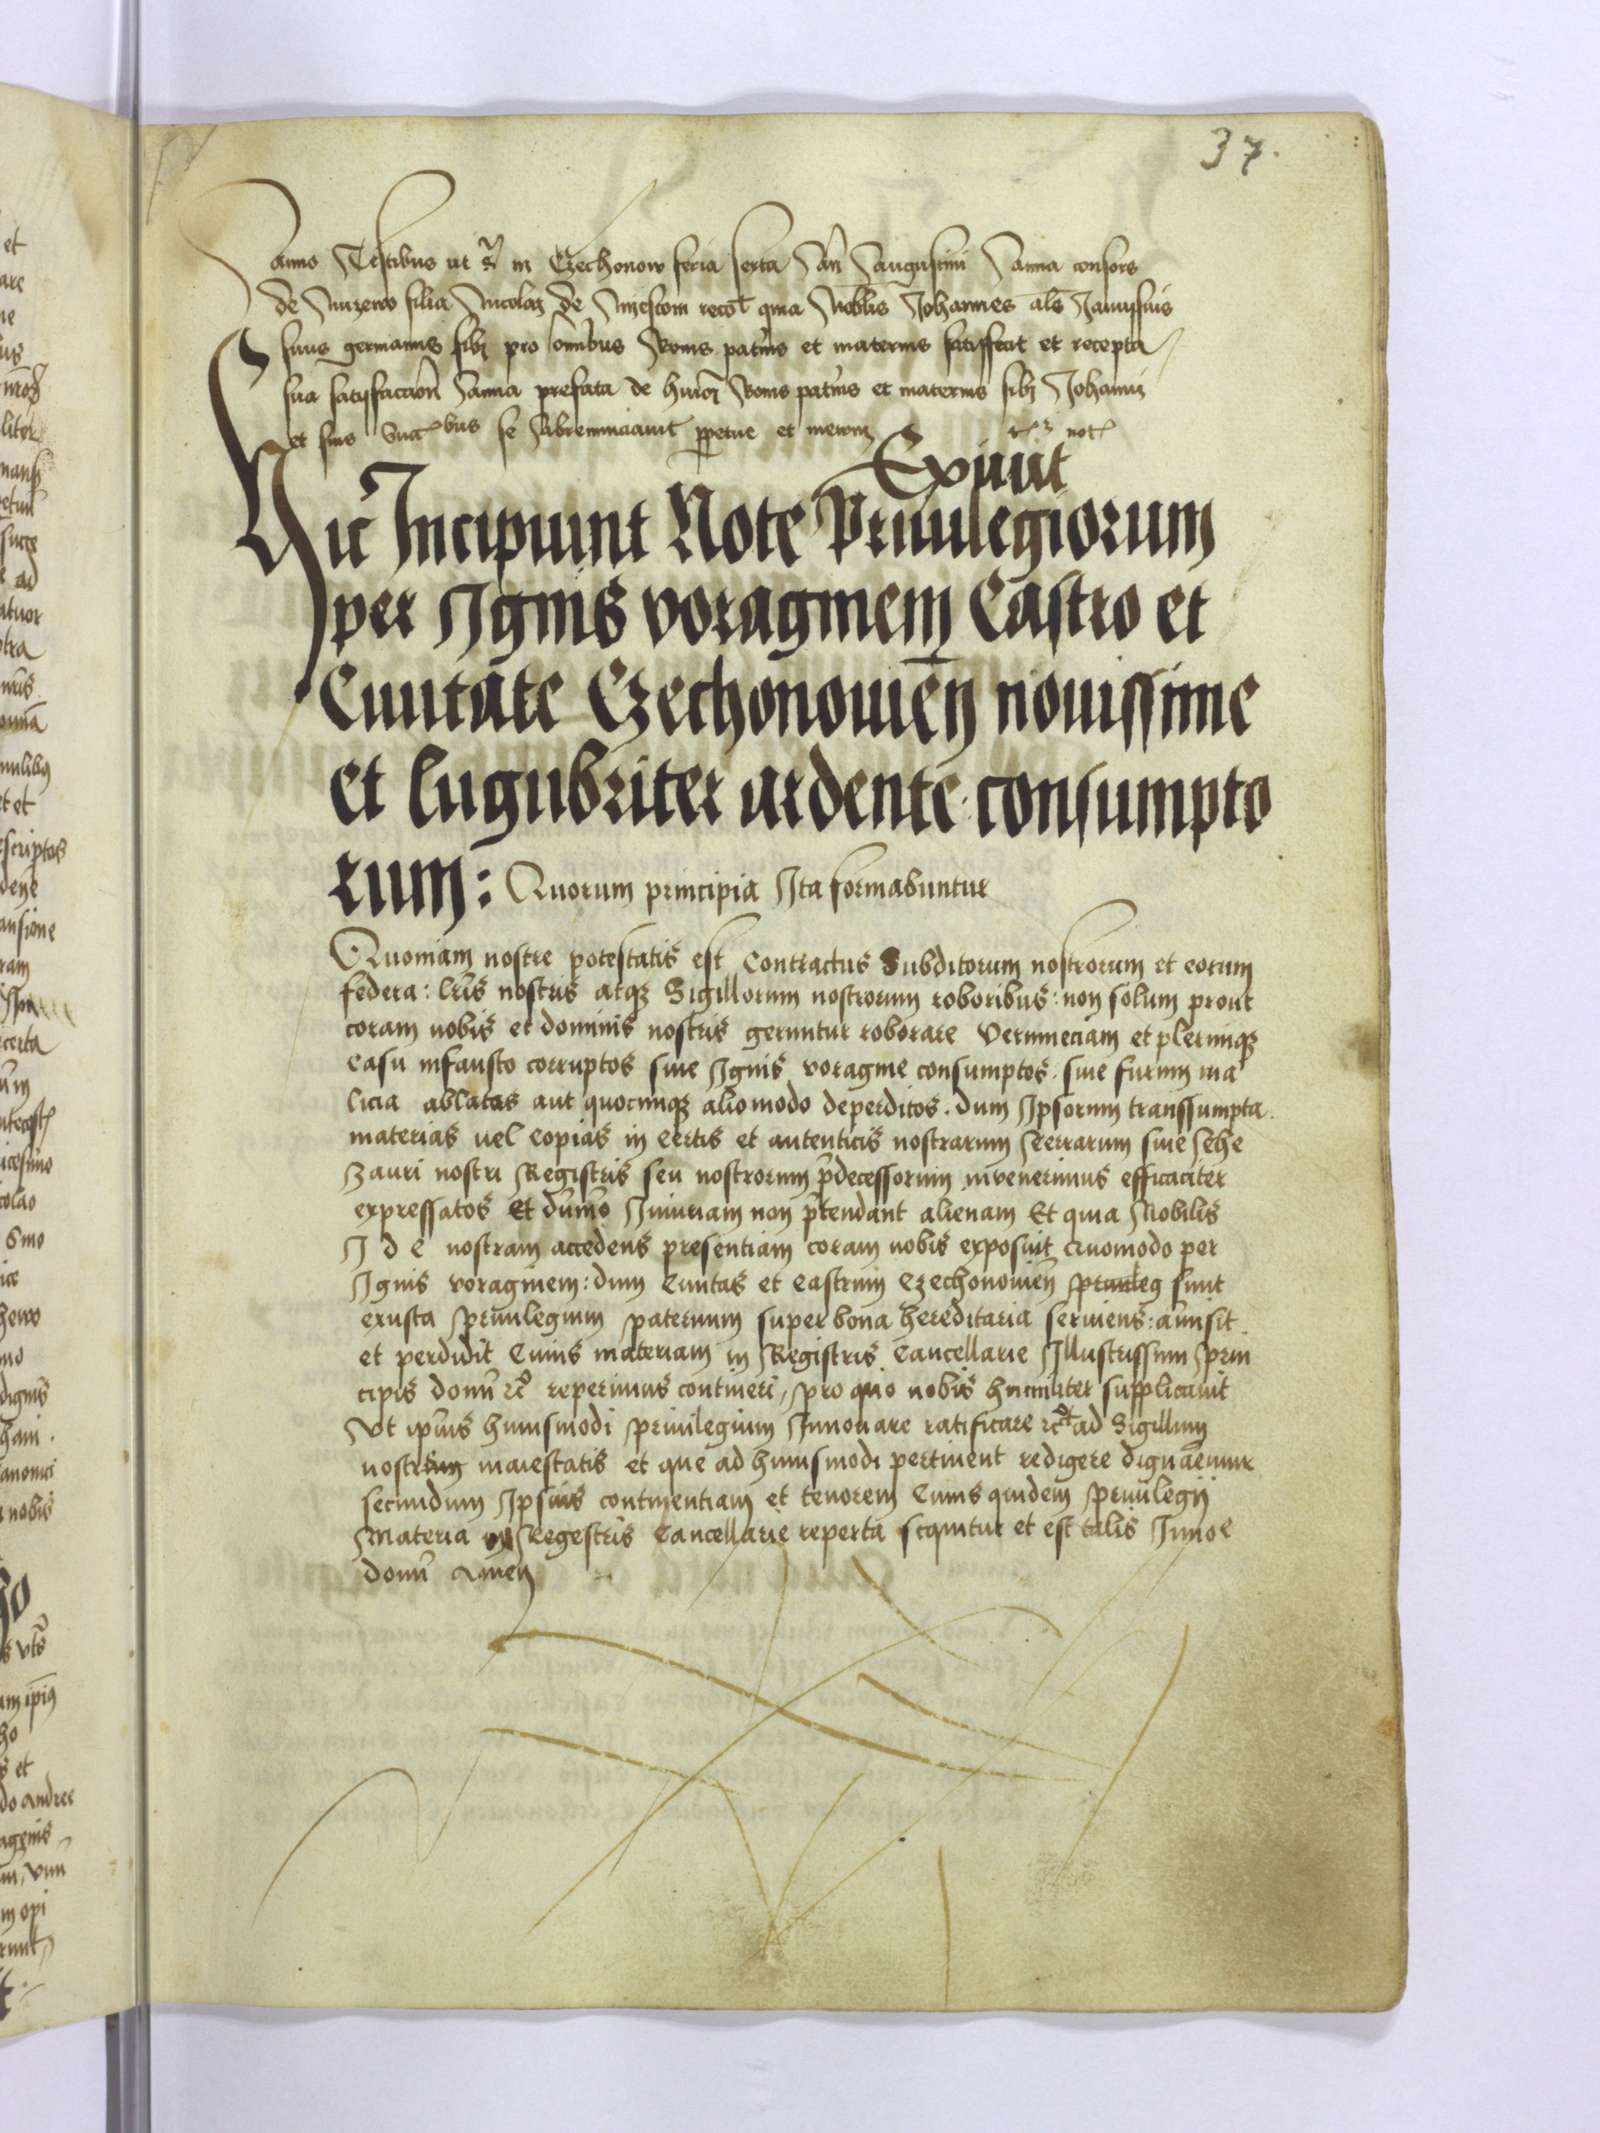 37.
anno Testibus ut s̃ in Czechonow feria sexta Sci Augustini Anna consors
de filia Nicolai de recog̃t quia Nobilis Johannes als̃ Janussius
suus germanus sibi pro omnibus bonis patnis et maternis satisfecit et recepta
sua satisfaccione Anna prefata de bonis patnis et maternis sibi Johanni
et suis Succ bus se abrenunciavit ppetue et
not
Exiuit
Hic Incipiunt Note Priuilegiorum
per Ignis voraginem Castro et
Ciuitate Czechonouien̄ nouissime
et lugubriter ardente consumpto
rum: Quorum principia Ita formabuntur
Quoniam nostre potestatis est Contractus Subditorum nostrorum et eorum
federa: lrīs nostris atqz Sigillorum nostrorum roboribus: non solum prout
coram nobis et dominis nostris geruntur roborare Verumeciam et plerumqz
casu infausto corruptos siue Ignis voragine consumptos. siue furum ma
licia ablatas aut quocumqz aliomodo deperditos. dum Ipsorum transsumpta.
materias uel copias in certis et autenticis nostrarum terrarum siue The
zauri nostri Registris seu nostrorum p̄decessorum inuenerimus efficaciter
expressatos Et dūmō Iniuriam non p̄tendant alienam Et quia Nobilis
I d e nostram accedens presentiam coram nobis exposuit quomodo per
Ignis voraginem: dum Ciuitas et Castrum Czechonouien̄ priuileg sunt
exusta priuilegium paternum super bona hereditaria seruiens: amisit.
et perdidit Cuius materiam in Registris Cancellarie Illustrissimi prin
cipis domī rc̄ reperimus contineri, pro quo nobis humiliter supplicauit
Vt ip̄ius huiusmodi priuilegium Innouare ratificare rc̄ et ad Sigillum
nostrum maiestatis et que ad huiusmodi pertinent redigere dignaremur
secundum Ipsius continentiam et tenorem Cuius quidem priuilegii
Materia in Regestris Cancellarie reperta sequitur et est talis In noē
domī amen